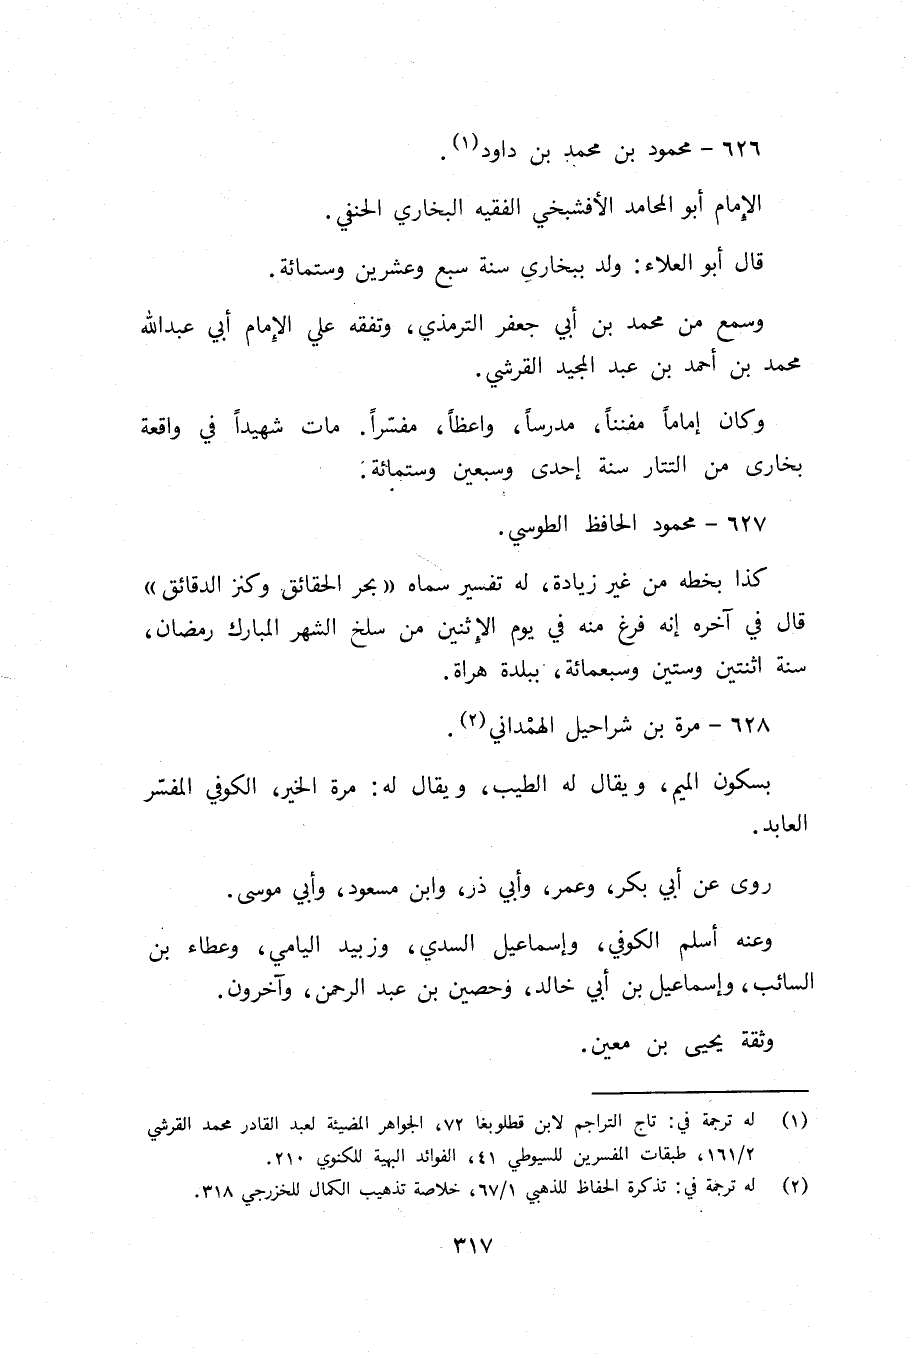 ٦٢٦ – محمود بن محمد بن داود(١).
الإمام أبو المحامد الأفشبخي الفقيه البخاري الحنفي.
قال أبو العلاء: ولد ببخاري سنة سبع وعشرين وستمائة.
وسمع من محمد بن أبي جعفر الترمذي، وتفقه علي الإمام أبي عبدالله
محمد بن أحمد بن عبد المجيد القرشي.
وكان إماماً مفنناً، مدرساً، واعظاً، مفسّراً. مات شهيداً في واقعة
بخارى من التتار سنة إحدى وسبعين وستمائة.
٦٢٧ – محمود الحافظ الطوسي.
كذا بخطه من غير زيادة، له تفسير سماه «بحر الحقائق وكنز الدقائق»
قال في آخره إنه فرغ منه في يوم الإثنين من سلخ الشهر المبارك رمضان،
سنة اثنتين وستين وسبعمائة، ببلدة هراة.
٦٢٨ – مرة بن شراحيل الهمْداني(٢).
بسكون الميم، ويقال له الطيب، ويقال له: مرة الخير، الكوفي المفسّر
العابد.
روى عن أبي بكر، وعمر، وأبي ذر، وابن مسعود، وأبي موسى.
وعنه أسلم الكوفي، وإسماعيل السدي، وزبيد اليامي، وعطاء بن
السائب، وإسماعيل بن أبي خالد، وحصين بن عبد الرحمن، وآخرون.
وثقة يحيى بن معين.
(١) له ترجمة في: تاج التراجم لابن قطلوبغا ٧٢، الجواهر المضيئة لعبد القادر محمد القرشي
١٦١/٢، طبقات المفسرين للسيوطي ٤١، الفوائد البهية للكنوي ٢١٠.
(٢) له ترجمة في: تذكرة الحفاظ للذهبي ٦٧/١، خلاصة تذهيب الكمال للخزرجي ٣١٨.
٣١٧